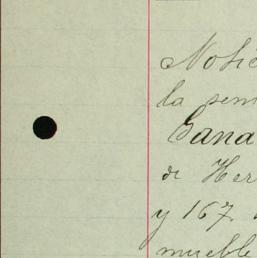 Notic
la sem
Gana
de Her
y 167.
mueble